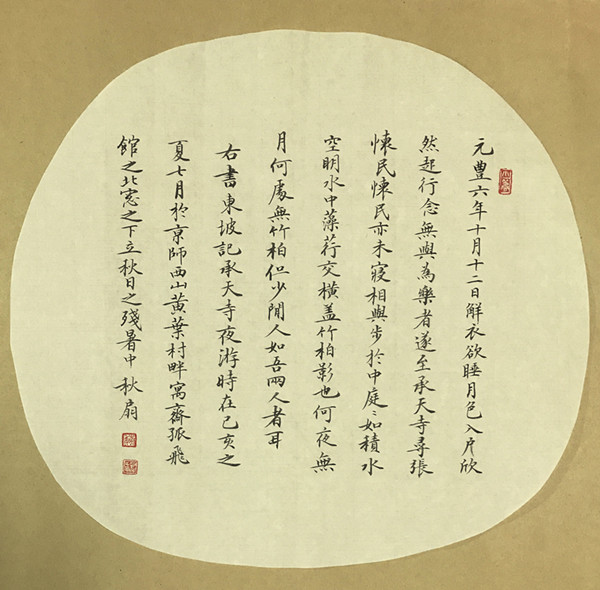 元豐六年十月十二日解衣欲睡月色入戶欣
然起行念無與為樂者遂至承天寺尋張
懷民懷民亦未寢相與步於中庭〻如積水
空明水中藻荇交橫蓋竹柏影也何夜無
月何處無竹柏但少閒人如吾兩人者耳
右書東坡記承天寺夜游時在己亥之
夏七月於京師西山黃葉村畔寓齋孤飛
館之北窗之下立秋日之殘暑中 秋扇